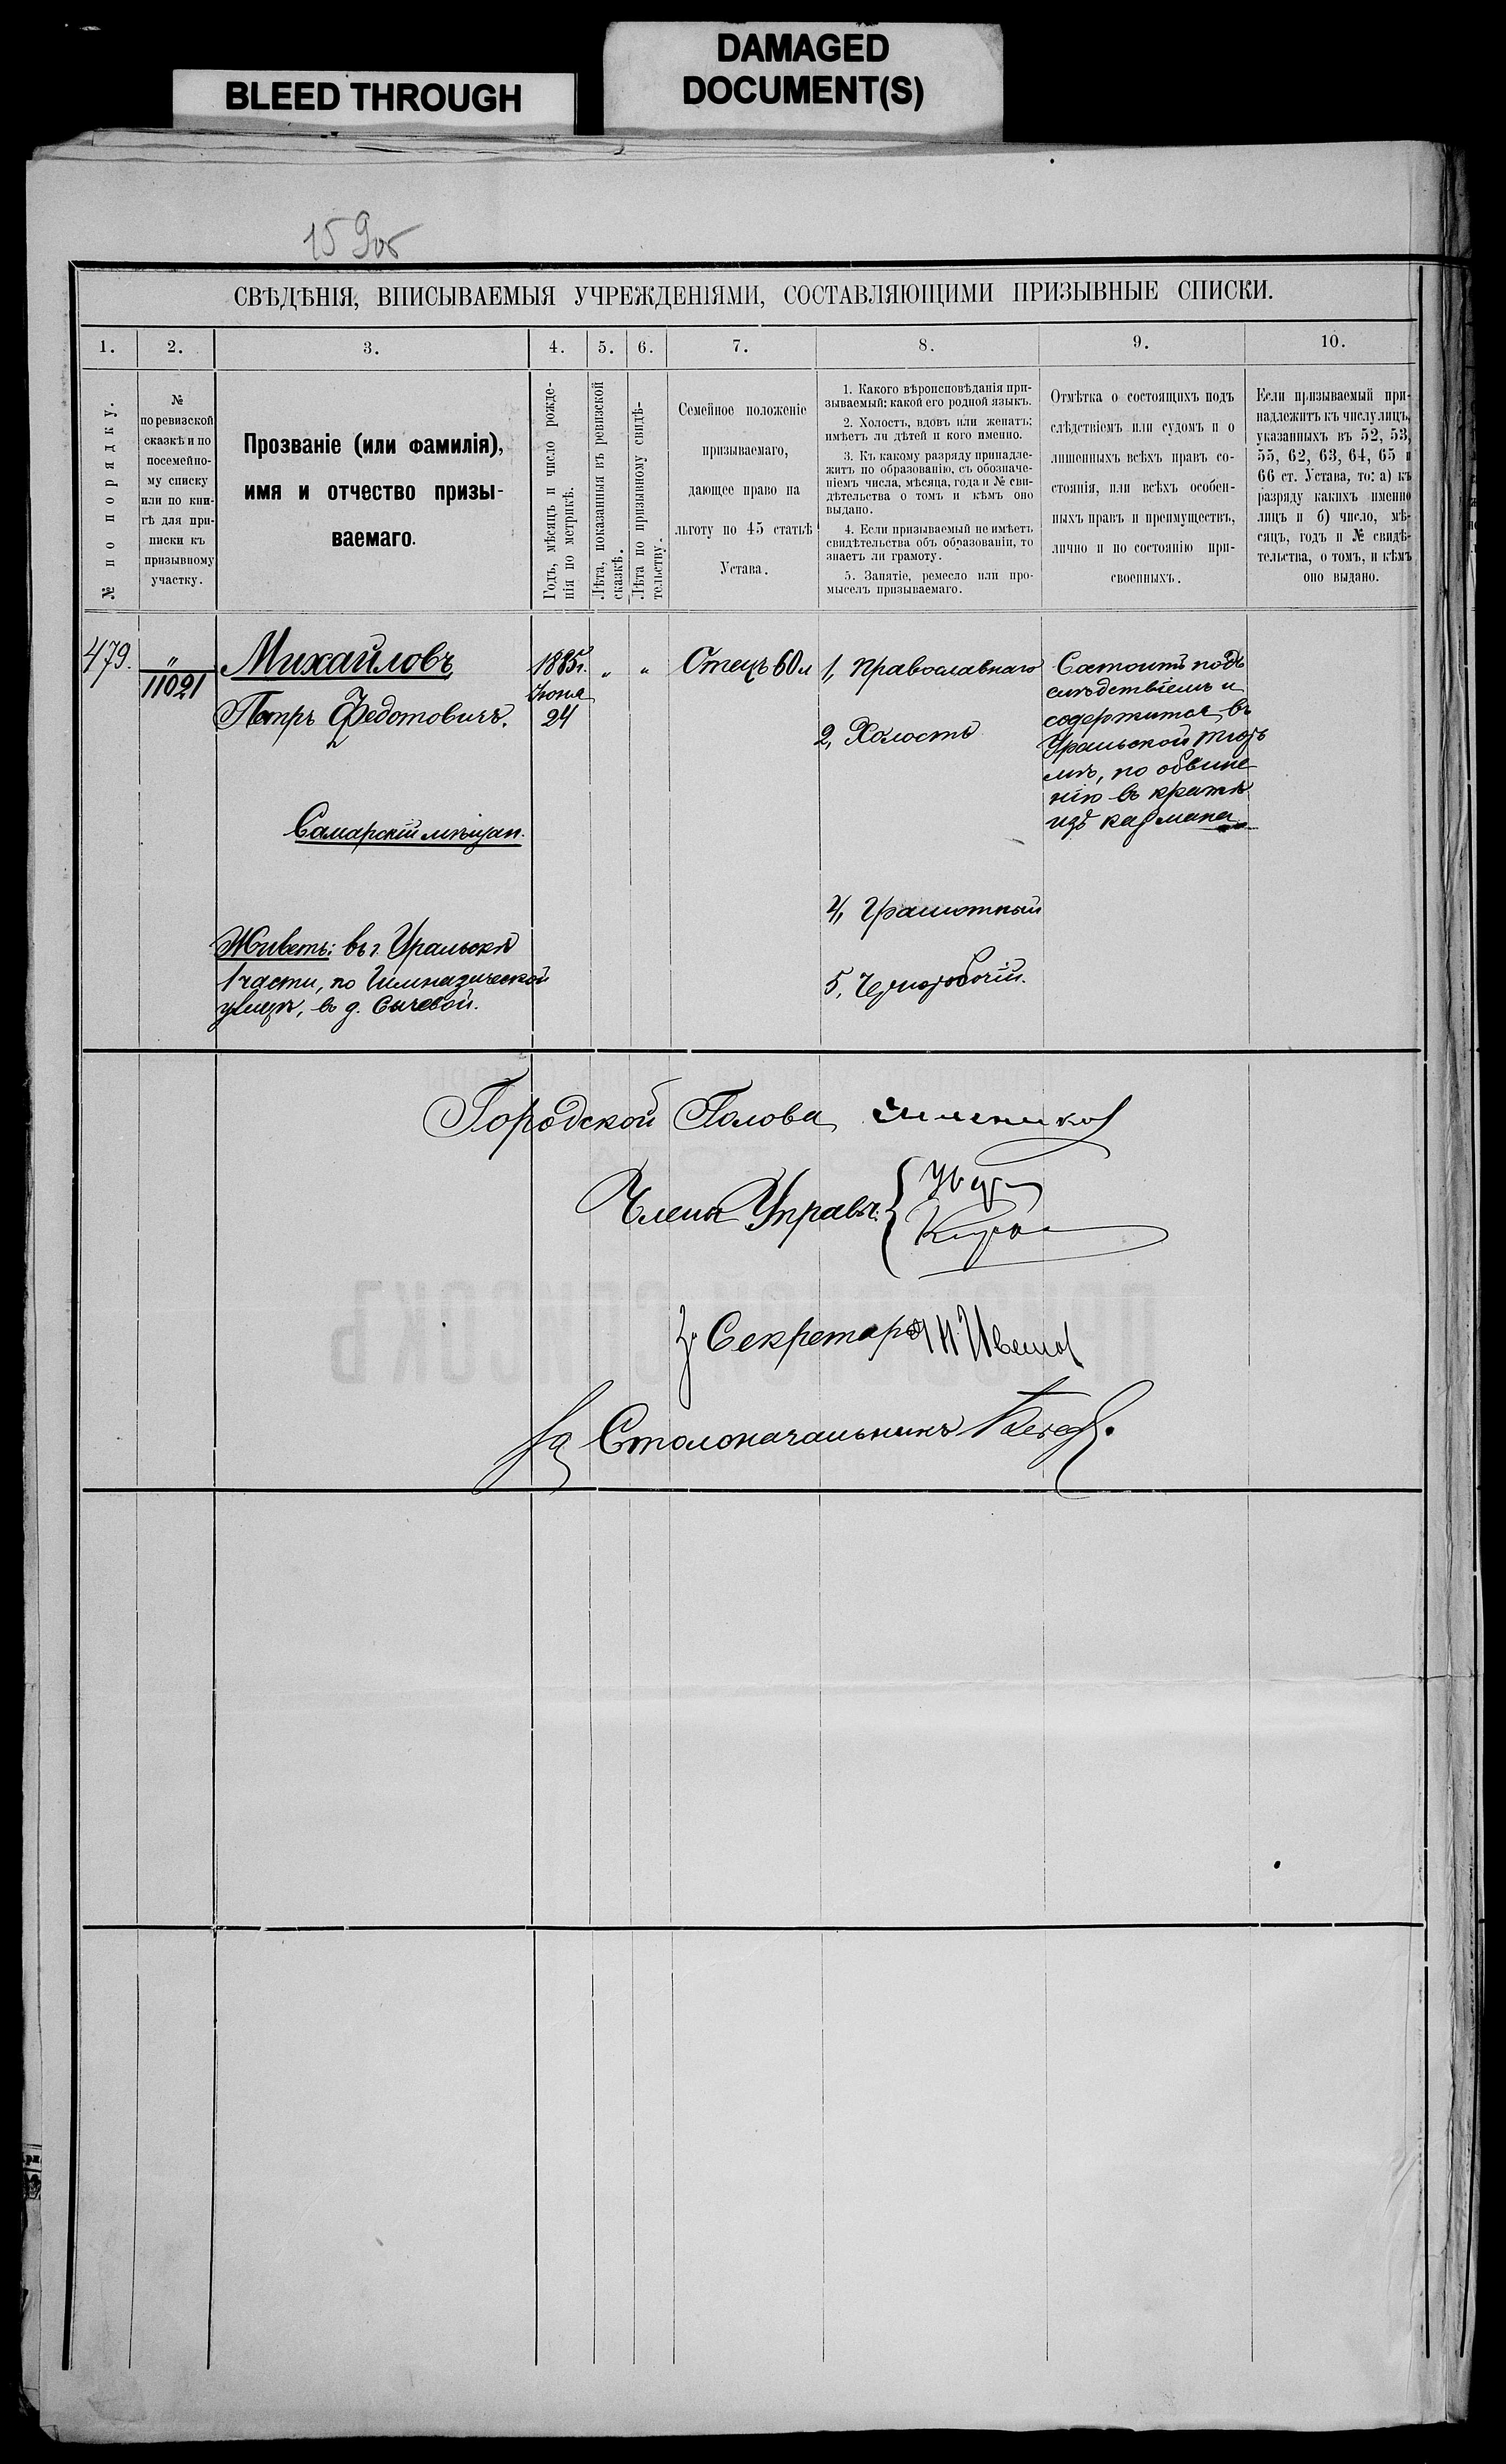 BLEED THROUGH
DAMAGED
DOCUMENT(S)
159об
СВѢДѢНІЯ, ВПИСЫВАЕМЫЯ УЧРЕЖДЕНІЯМИ, СОСТАВЛЯЮЩИМИ ПРИЗЫВНЫЕ СПИСКИ.
1. 2. 3. 4. 5. 6. 7. 8. 9. 10.
№ по порядку.
№
по ревизской
сказкѣ и по
посемейно-
му списку
или по кни-
гѣ для при-
писки къ
призывному
участку.
Прозваніе (или фамилія),
имя и отчество призы-
ваемаго.
Годъ, мѣсяцъ и число рожде-
нія по метрикѣ.
Лѣта, показанныя въ ревизской
сказкѣ.
Лѣта по призывному свидѣ-
тельству.
Семейное положеніе
призываемаго,
дающее право на
льготу по 45 статьѣ
Устава.
1. Какого вѣроисповѣданія при-
зываемый; какой его родной языкъ.
2. Холостъ, вдовъ или женатъ;
имѣетъ ли дѣтей и кого именно.
3. Къ какому разряду принадле-
житъ по образованію, съ обозначе-
ніемъ числа, мѣсяца, года и № сви-
дѣтельства о томъ и кѣмъ оно
выдано.
4. Если призываемый не имѣетъ
свидѣтельства объ образованіи, то
знаетъ ли грамоту.
5. Занятіе, ремесло или про-
мыселъ призываемаго.
Отмѣтка о состоящихъ подъ
слѣдствіемъ или судомъ и о
лишенныхъ всѣхъ правъ со-
стоянія, или всѣхъ особен-
ныхъ правъ и преимуществъ,
лично и по состоянію при-
своенныхъ.
Если призываемый при-
надлежитъ къ числу лицъ,
указанныхъ въ 52, 53,
55, 62, 63, 64, 65 и
66 ст. Устава, то: а) къ
разряду какихъ именно
лицъ и б) число, мѣ-
сяцъ, годъ и № свидѣ-
тельства, о томъ, и кѣмъ
оно выдано.
479.
"
11021
Михайловъ
Петръ Федотовичъ.
Самарскій мѣщан.
Живетъ: въ г. Уральскѣ
1 части, по Гимназической
улицѣ, в д. Сычевой.
1885г.
Іюня
24
" "
Отецъ 60 л
1, Православнаго
2, Холостъ
4, Грамотный
5, Чернорабочій.
Состоитъ подъ
слѣдствіемъ и
содержится въ
Уральской тюрь
мѣ, по обвине
нію въ кражѣ
изъ кармана
Городской Голова
Члены Управы:
Секретаря
Столоначальникъ